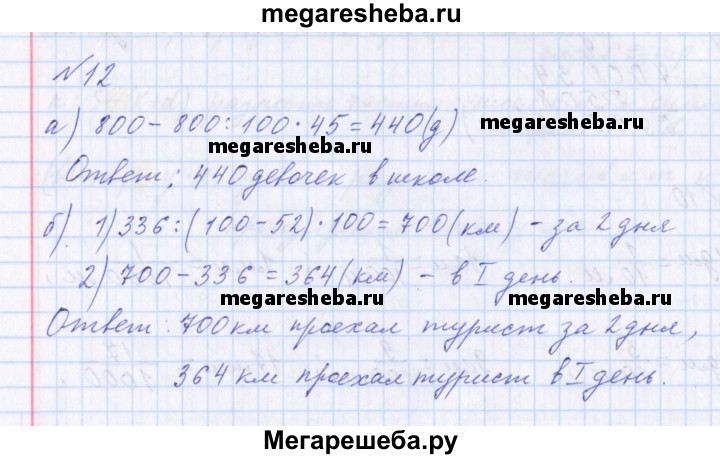 megaresheba.ru
№12
а) 800-800:100·45=440(д)
megaresheba.ru
megaresheba.ru
Ответ: 440 девочек в школе.
б) 1) 336:(100-52)·100=700(км) - за 2 дня
2) 700-336=364(км) - в I день.
megaresheba.ru
megaresheba.ru
Ответ: 700 км проехал турист за 2 дня,
364 км проехал турист в I день.
Мегарешеба.ру